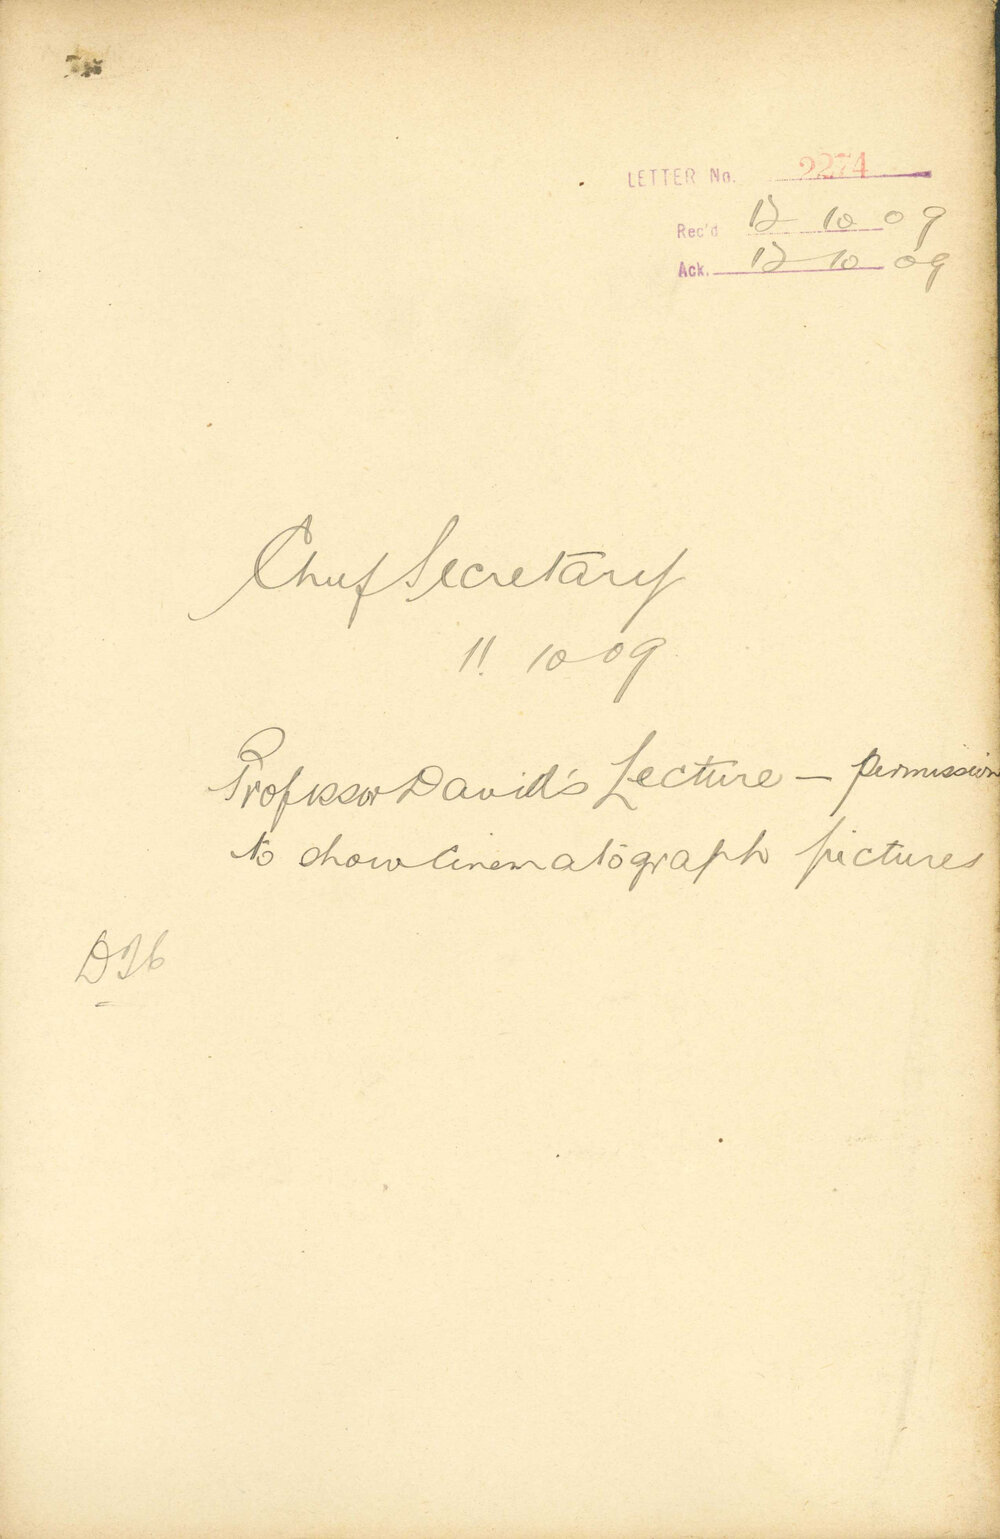 LETTER No. 2274
Rec'd 12 10 09
Ack. 12 10 09
Chief Secretary
11. 10 09
Professor David's Lecture — permission
to show Cinematograph pictures